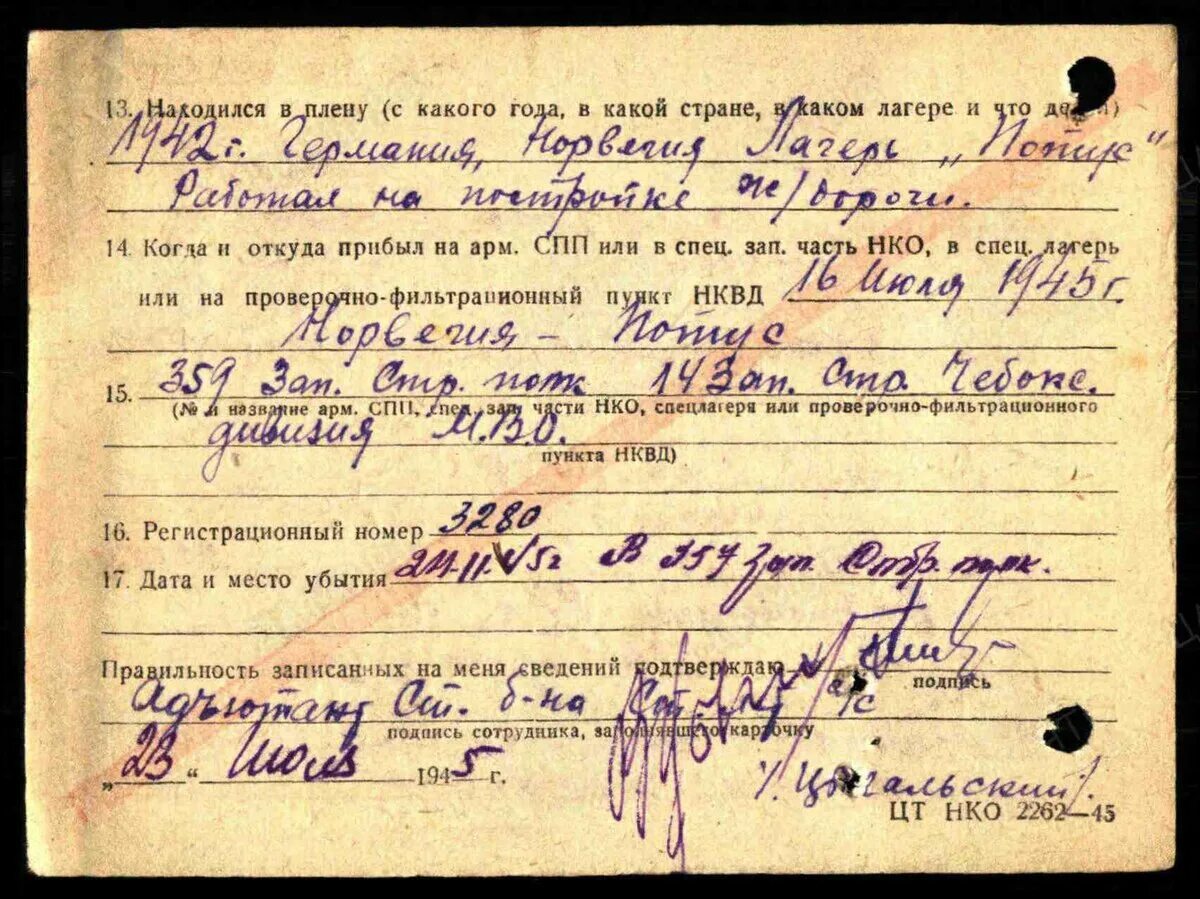 13. Находился в плену (с какого года, в какой стране, в каком лагере и что делал)
1942 г. Германия, Норвегия Лагерь „Потус“
Работал на постройке ж/дороги.
14. Когда и откуда прибыл на арм. СПП или в спец. зап. часть НКО, в спец. лагерь
или на проверочно-фильтрационный пункт НКВД 16 Июля 1945 г.
Норвегия – Потус
15. 359 Зап. Стр. полк 14 Зап. Стр. Чебокс.
(№ и название арм. СПП, спец. зап. части НКО, спецлагеря или проверочно-фильтрационного
дивизия М.В.О.
пункта НКВД)
16. Регистрационный номер 3280
17. Дата и место убытия 24-11-45 г В 357 Зап. Стр. полк.
Правильность записанных на меня сведений подтверждаю
подпись
Адъютант Ст. б-на
подпись сотрудника, заполнявшего карточку
„23“ Июля 1945 г.
/Цыгальский/.
ЦТ НКО 2262—45